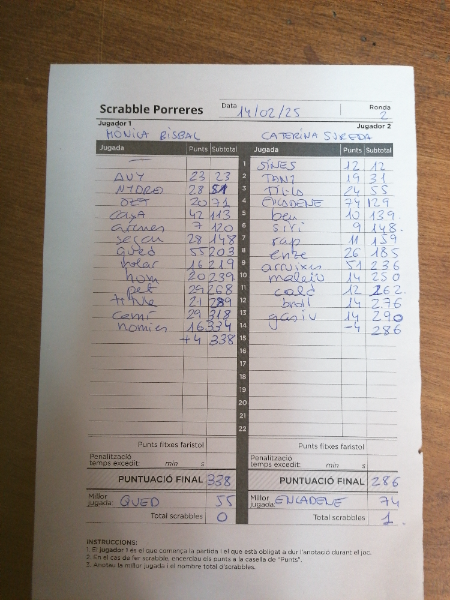 Scrabble Porreres Data 14/02/25 Ronda 2
Jugador 1 Jugador 2
MONICA BISBAL CATERINA SUREDA
Jugada Punts Subtotal Jugada Punts Subtotal
— 1 SINES 12 12
23 23 2 19 31
28 51 3 24 55
20 71 4 ENCADENE 74 129
casa 42 113 5 beu 10 139
7 120 6 siri 9 148
secau 28 148 7 rap 11 159
qued 55 203 8 enze 26 185
16 219 9 51 236
hom 20 239 10 maleiu 14 250
pet 29 268 11 cald 12 262
21 289 12 broll 14 276
camí 29 318 13 gasiu 14 290
16 334 14 -4 286
+4 338 15
16
17
18
19
20
21
22
Punts fitxes faristol Punts fitxes faristol
Penalització temps excedit: min s Penalització temps excedit: min s
PUNTUACIÓ FINAL 338 PUNTUACIÓ FINAL 286
Millor jugada: QUED 55 Millor jugada: ENCADENE 74
Total scrabbles 0 Total scrabbles 1
INSTRUCCIONS:
1. El jugador 1 és el que comença la partida i el que està obligat a dur l'anotació durant el joc.
2. En el cas de fer scrabble, encerclau els punts a la casella de "Punts".
3. Anotau la millor jugada i el nombre total d'scrabbles.